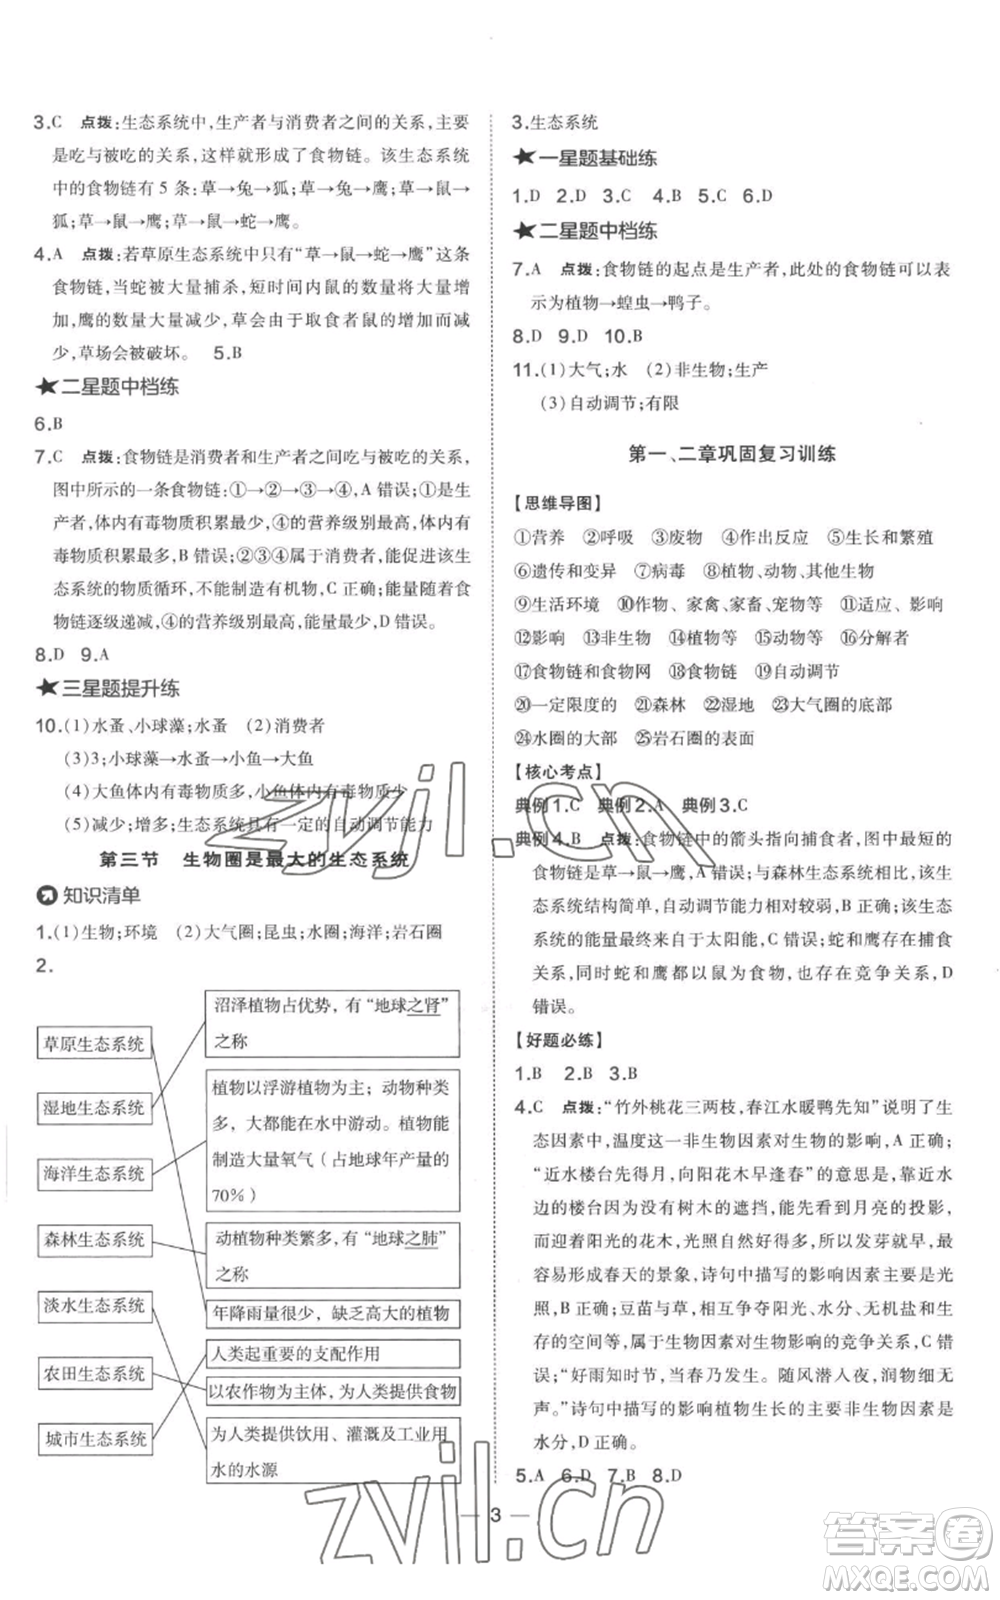 3.C 点拨:生态系统中,生产者与消费者之间的关系,主要
是吃与被吃的关系,这样就形成了食物链。该生态系统
中的食物链有 5 条:草→兔→狐;草→兔→鹰;草→鼠→
狐;草→鼠→鹰;草→鼠→蛇→鹰。
4.A 点拨:若草原生态系统中只有“草→鼠→蛇→鹰”这条
食物链,当蛇被大量捕杀,短时间内鼠的数量将大量增
加,鹰的数量大量减少,草会由于取食者鼠的增加而减
少,草场会被破坏。 5.B
★二星题中档练
6.B
7.C 点拨:食物链是消费者和生产者之间吃与被吃的关系,
图中所示的一条食物链:①→②→③→④,A 错误;①是生
产者,体内有毒物质积累最少,④的营养级别最高,体内有
毒物质积累最多,B 错误;②③④属于消费者,能促进该生
态系统的物质循环,不能制造有机物,C 正确;能量沿着食
物链逐级递减,④的营养级别最高,获得的能量最少,D 错误。
8.D 9.A
★三星题提升练
10.(1)水蚤、小球藻;水蚤 (2)消费者
(3)3;小球藻→水蚤→小鱼→大鱼
(4)大鱼体内有毒物质多,小鱼体内有毒物质少
(5)减少;增多;生态系统具有一定的自动调节能力
第三节 生物圈是最大的生态系统
知识清单
1.(1)生物;环境 (2)大气圈;昆虫;水圈;海洋;岩石圈
2.
草原生态系统
湿地生态系统
海洋生态系统
森林生态系统
淡水生态系统
农田生态系统
城市生态系统
沼泽植物占优势,有“地球之肾”
之称
植物以浮游植物为主;动物种类
多,大都能在水中游动。植物能
制造大量氧气(占地球年产量的
70%)
动植物种类繁多,有“地球之肺”
之称
年降雨量很少,缺乏高大的植物
人类起重要的支配作用
以农作物为主体,为人类提供食物
为人类提供饮用、灌溉及工业用
水的水源
3.生态系统
★一星题基础练
1.D 2.D 3.C 4.B 5.C 6.D
★二星题中档练
7.A 点拨:食物链的起点是生产者,此处的食物链可以表
示为植物→蝗虫→鸭子。
8.D 9.D 10.B
11.(1)大气;水 (2)非生物;生产
(3)自动调节;有限
第一、二章巩固复习训练
【思维导图】
①营养 ②呼吸 ③废物 ④作出反应 ⑤生长和繁殖
⑥遗传和变异 ⑦病毒 ⑧植物、动物、其他生物
⑨生活环境 ⑩作物、家禽、家畜、宠物等 ⑪适应、影响
⑫影响 ⑬非生物 ⑭植物等 ⑮动物等 ⑯分解者
⑰食物链和食物网 ⑱食物链 ⑲自动调节
⑳一定限度的 ㉑森林 ㉒湿地 ㉓大气圈的底部
㉔水圈的大部 ㉕岩石圈的表面
【核心考点】
典例 1.C 典例 2.A 典例 3.C
典例 4.B 点拨:食物链中的箭头指向捕食者,图中最长的
食物链是草→鼠→蛇→鹰,A 错误;与森林生态系统相比,该生
态系统结构简单,自动调节能力相对较弱,B 正确;该生态
系统的能量最终来自于太阳能,C 错误;蛇和鹰存在捕食
关系,同时蛇和鹰都以鼠为食物,也存在竞争关系,D
错误。
【好题必练】
1.B 2.B 3.B
4.C 点拨:“竹外桃花三两枝,春江水暖鸭先知”说明了生
态因素中,温度这一非生物因素对生物的影响,A 正确;
“近水楼台先得月,向阳花木早逢春”的意思是,靠近水
边的楼台因为没有树木的遮挡,能先看到月亮的投影,
而迎着阳光的花木,光照自然好得多,所以发芽就早,最
易形成春天的景象,诗句中描写的影响因素主要是光
照,B 正确;豆苗与草,相互争夺阳光、水分、无机盐和生
存的空间等,属于生物因素对生物影响的竞争关系,C 错
误;“好雨知时节,当春乃发生。随风潜入夜,润物细无
声。”诗句中描写的影响植物生长的主要非生物因素是
水分,D 正确。
5.A 6.D 7.B 8.D
3
zyjl.cn
zyjl.cn
答案圈
MXQE.COM